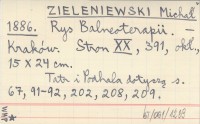 ZIELENIEWSKI Michał
1886. Rys Balneoterapii. —
Kraków. Stron XX, 391, okł.,
15 x 24 cm.
Tatr i Podhala dotyczą s.
67, 91-92, 202, 208, 209.